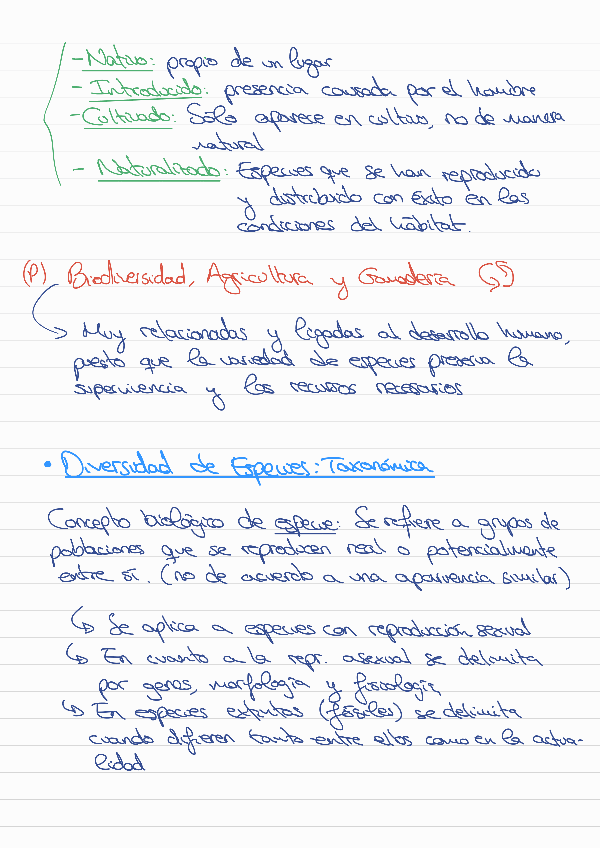 - Nativo: propio de un lugar
- Introducido: presencia causada por el hombre
- Cultivado: Sólo aparece en cultivo, no de manera
natural
- Naturalizado: Especies que se han reproducido
y distribuido con éxito en las
condiciones del hábitat.
(P) Biodiversidad, Agricultura y Ganadería
↳ Muy relacionadas y ligadas al desarrollo humano,
puesto que la variedad de especies preserva la
supervivencia y los recursos necesarios
• Diversidad de Especies: Taxonómica
Concepto biológico de especie: Se refiere a grupos de
poblaciones que se reproducen real o potencialmente
entre sí. (no de acuerdo a una apariencia similar)
↳ Se aplica a especies con reproducción sexual
↳ En cuanto a la repr. asexual se delimita
por genes, morfología y fisiología
↳ En especies extintas (fósiles) se delimita
cuando difieren tanto entre ellos como en la actua-
lidad